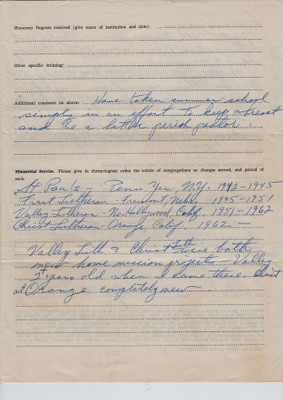 Honorary Degrees received (give name of institution and date):
Other specific training:
Additional comment on above: Have taken summer school
simply in an effort to keep abreast
and to be a better parish pastor.
Ministerial Service. Please give in chronological order the names of congregations or charges served, and period of
each.
St Paul's - Penn Yan, N.Y. 1942-1945
First Lutheran - Fremont, Nebr. 1945-1951
Valley Lutheran - No. Hollywood, Calif. 1951-1962
Christ Lutheran - Orange, Calif. 1962 -
Valley Luth & Christ Luth were both
new home mission projects - Valley
2 years old when I came there.
at Orange completely new